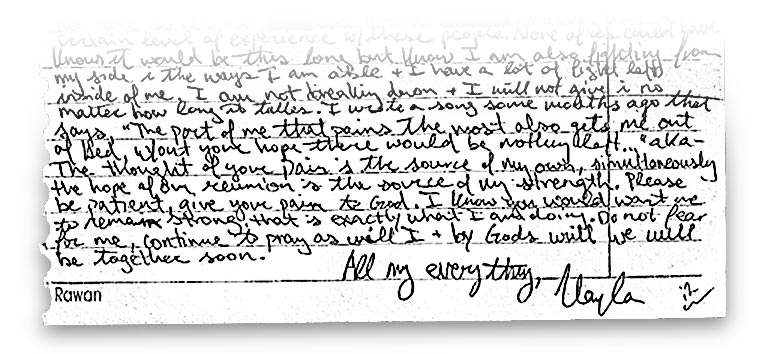 certain level of experience w/ these people. None of us could have
known it would be this long but know I am also fighting from
my side in the ways I am able + I have a lot of fight left
inside of me. I am not breaking down + I will not give in no
matter how long it takes. I wrote a song some months ago that
says, "The part of me that pains the most also gets me out
of bed, w/out your hope there would be nothing left..." aka-
The thought of your pain is the source of my own, simultaneously
the hope of our reunion is the source of my strength. Please
be patient, give your pain to God. I know you would want me
to remain strong, that is exactly what I am doing. Do not fear
for me, continue to pray as will I + by Gods will we will
be together soon.
All my everything, Kayla
Rawan